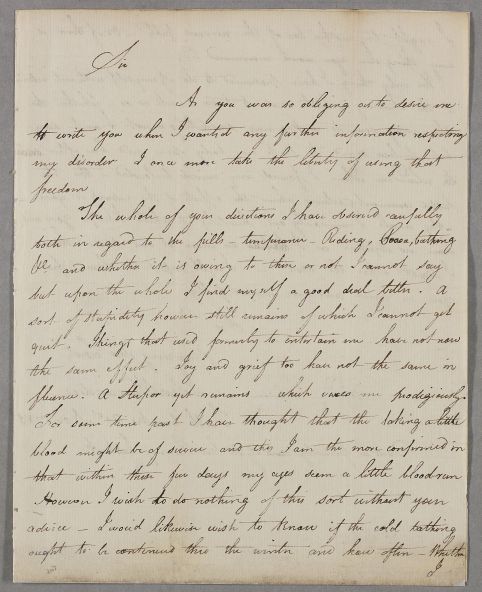 Sir
As you was so obliging as to desire me
to write you when I wanted any further information respecting
my disorder I once more take the liberty of using that
freedom
The whole of your directions I have observed carefully
both in regard to the pills – temperance – Riding, bathing
&c and whether it is owing to them or not I cannot say
but upon the whole I find myself a good deal better. A
sort of Stupidity however still remains of which I cannot get
quit. Things that used formerly to entertain me have not now
the same effect. Joy and grief too have not the same in
fluence. A Stupor yet remains which vexes me prodigiously.
For some time past I have thought that the taking a little
blood might be of service and this I am the more confirmed in
that within these few days my eyes seem a little bloodrun
However I wish to do nothing of this sort without your
advice – I would likewise wish to know if the cold bathing
ought to be continued thro the winter and how often – Whether
I